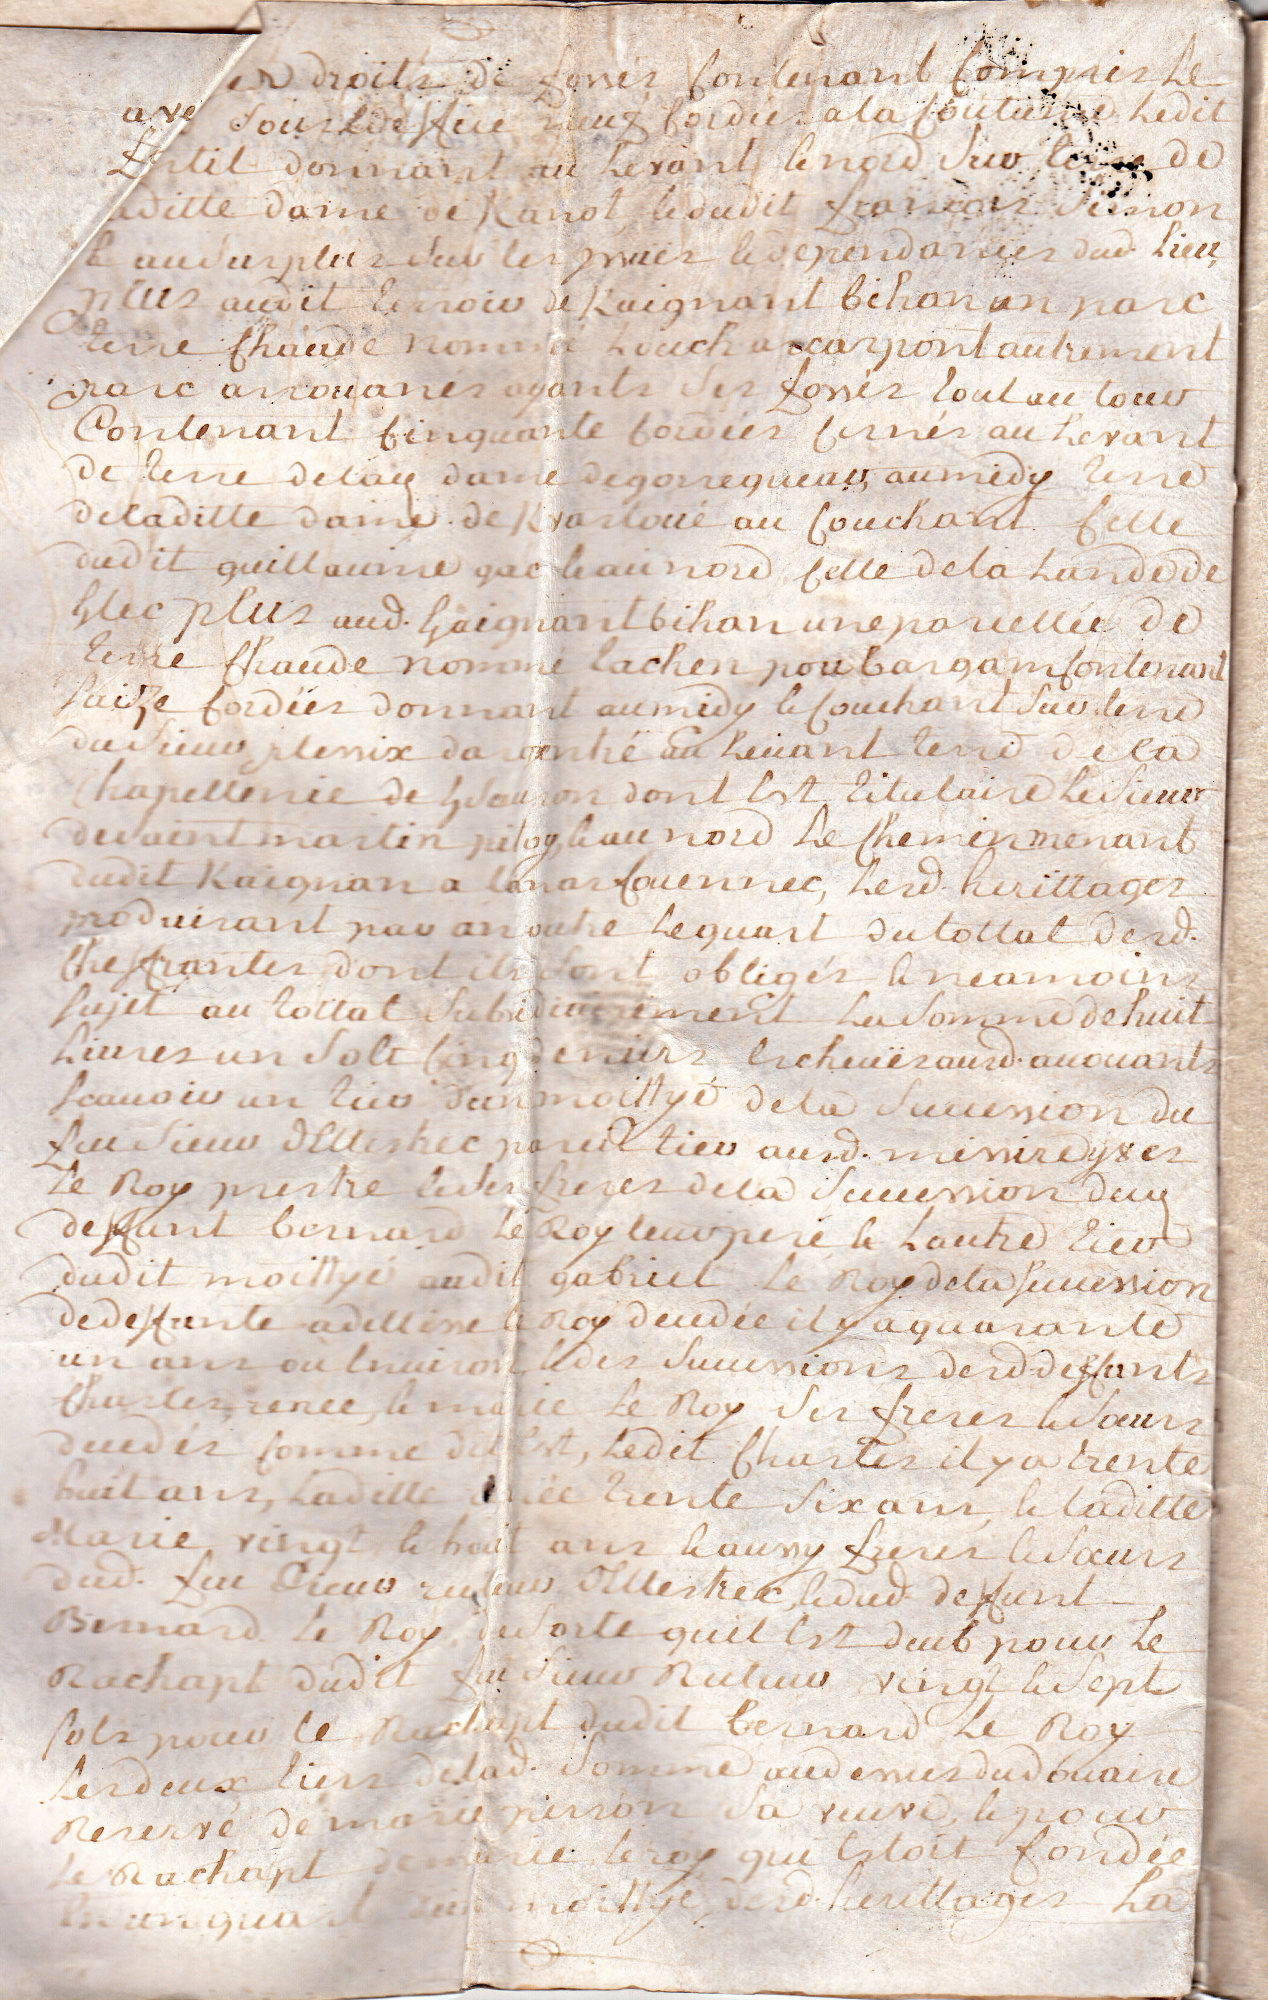 droits de fossés contenant compris le
ave sous ledeffue neuf cordées a la coutume ledit
donnant au levant le nord sur terre de
aditte dame de Kanot, dudit françois simon
au surplus sur les le dependances dud. lieu,
plus audit terroir de Kaignant bihan un parc
terre chaude nommé autrement
parc arrouanés ayants ses fossés tout au tour
Contenant cinquante cordées cernés au levant
de terre delad. dame degorrequear, au midy terre
deladitte dame de au couchant celle
dudit guillaume le au nord celle de la lande de
plus aud. Kaignant bihan une parcellée de
terre chaude nommé lachen poubargam contenant
saize cordées donnant au midy le couchant sur terre
du sieur plessix dargentré au levant terre de la
chapellenie de dont est titulaire le sieur
de saint martin le au nord le chemin menant
dudit Kaignan a lanarcouennec, lesd. herittages
produisant par an outre le quart du tottal desd.
cheffrantes, dont ils sont obligés le neamoins
sujet au tottal subsidiairement la somme de huit
livres un solt cinq deniers escheües ausd. avouants
scavoir un tier d'un moittyé de la succession du
feu sieur pareil tier ausd. missire yves
le Roy prestre le ses freres de la succession de
deffunt bernard le Roy leur pere le lautre tier
dudit moittyé audit gabriel le Roy de la succession
dedeffunte le Roy decedée il y a quarante
un ans ou environ le des successions desd deffunts
Charles, renee, le marie le Roy ses freres le sœurs
decedés comme dit est, ledit Charles il y a trente
huit ans, laditte renée trente six ans, le laditte
Marie vingt le huit ans le aussy freres le sœurs
dud. feu sieur le dud. deffunt
Bernard le Roy, de sorte quil est deub pour le
Rachapt dudit feu sieur vingt le sept
sols pour le Rachapt dudit bernard le Roy
les deux tiers delad. somme au dessus du douaire
Reservé de marie sa veuve, le pour
le Rachapt de marie le roy qui estoit fondée
en un quart moittyé desd. herittages la